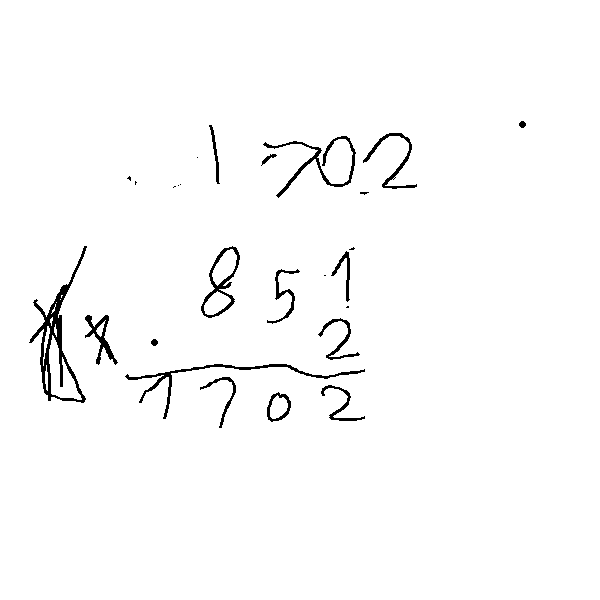 1702
851
x 2
1702